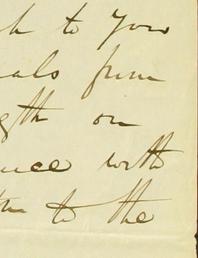 h to You
als from
gth on
ence with
to the